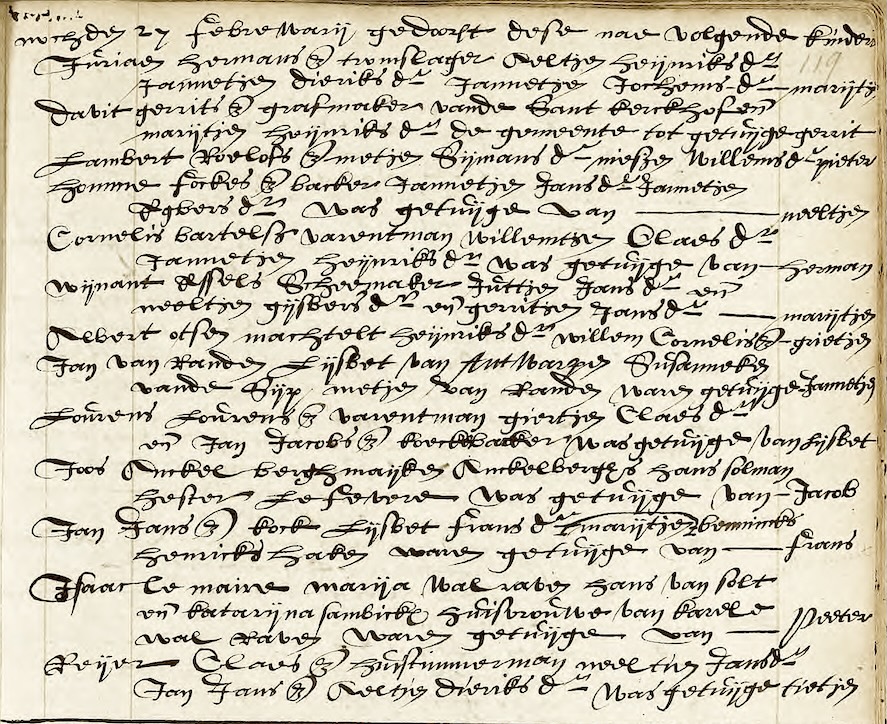 noch den 27 febrewarij gedoopt dese nae volgende kinder
119
Juriaen hermans z tromslager Aeltjen heijnriks dr
Jannetjen dieriks dr Jannetje Jochems dr — marijtje
davit gerrits z grafmaker vande Sant kerckhof en
marijtjen heijnriks dr de gemeente tot getuijge gerrit
Lambert Roelofs z metjen Sijmans dr niesjen Willems dr pieter
homme fockes z backer Jannetjen Jans dr Jannetjen
Egbers dr was getuijge van — neeltjen
Cornelis bartelsz varentman willemtjen Claes dr
Jannetjen heijnriks dr was getuijge van — herman
wijnant Essels Schoemaker Juttjen Jans dr en
neeltjen gijsbers dr en gerritjen Jans dr — marijtjen
Albert otsen machtelt heijnriks dr willem Cornelis z grietjen
Jan van Randen Lijsbet van Antwarpen Susanneken
vande Sijp metjen van Randen waren getuijge Jannetjen
Lourens Lourens z varentman giertjen Claes dr
en Jan Jacobs z koeckbacker was getuijge van Lijsbet
Joos Anckelbergh maijken Anckelberghs hans solman
hester Le fevere was getuijge van — Jacob
Jan Jans z kock Lijsbet frans dr marijtjen bennincks
henricks haken waren getuijge van — frans
Isaac le maire marija walraven hans van solt
en katarijna sambickx huisvrouwe van karele
wal Raven waren getuijge van — Peeter
Reijer Claes z huistimmerman neeltien Jans dr
Jan Jans z Aeltjen dieriks dr was getuijge tietjen